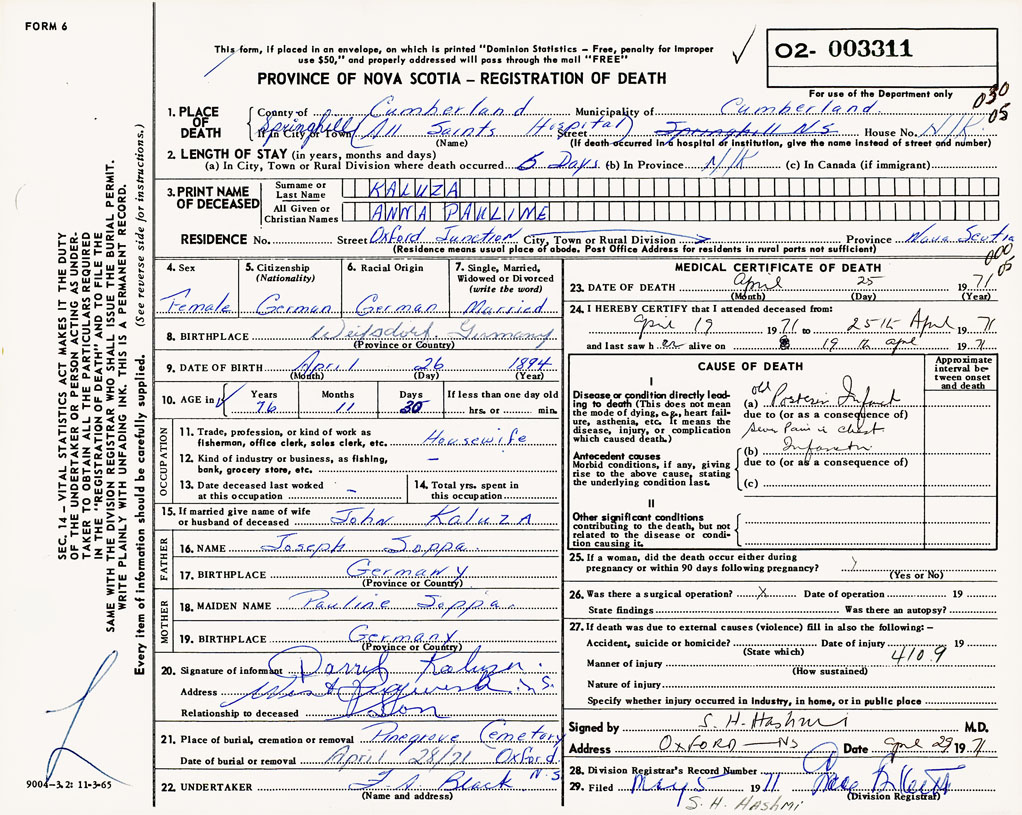 FORM 6
This form, if placed in an envelope, on which is printed "Dominion Statistics – Free, penalty for improper
use $50," and properly addressed will pass through the mail "FREE"
02- 003311
PROVINCE OF NOVA SCOTIA – REGISTRATION OF DEATH
For use of the Department only
030
05
1. PLACE OF DEATH
County of Cumberland Municipality of Cumberland
Springhill If in City or Town All Saints Hospital Street Springhill N S House No. N/K
(Name) (If death occurred in a hospital or institution, give the name instead of street and number)
2. LENGTH OF STAY (in years, months and days)
(a) In City, Town or Rural Division where death occurred 5 Days (b) In Province N/K (c) In Canada (if immigrant)
3. PRINT NAME OF DECEASED
Surname or Last Name KALUZA
All Given or Christian Names ANNA PAULINE
RESIDENCE No. Street Oxford Junction City, Town or Rural Division Province Nova Scotia
(Residence means usual place of abode. Post Office Address for residents in rural parts not sufficient)
000
05
4. Sex Female
5. Citizenship (Nationality) German
6. Racial Origin German
7. Single, Married, Widowed or Divorced (write the word) Married
8. BIRTHPLACE Germany
(Province or Country)
9. DATE OF BIRTH April 26 1894
(Month) (Day) (Year)
10. AGE in Years 76 Months 11 Days 30 If less than one day old hrs. or min.
OCCUPATION
11. Trade, profession, or kind of work as fisherman, office clerk, sales clerk, etc. Housewife
12. Kind of industry or business, as fishing, bank, grocery store, etc. –
13. Date deceased last worked at this occupation –
14. Total yrs. spent in this occupation
15. If married give name of wife or husband of deceased John Kaluza
FATHER
16. NAME Joseph Soppa
17. BIRTHPLACE Germany
(Province or Country)
MOTHER
18. MAIDEN NAME Pauline Soppa
19. BIRTHPLACE Germany
(Province or Country)
20. Signature of informant Kaluza
Address N.S.
Relationship to deceased Son
21. Place of burial, cremation or removal Pinegrove Cemetery
Date of burial or removal April 28/71 Oxford N.S.
22. UNDERTAKER Black
(Name and address)
MEDICAL CERTIFICATE OF DEATH
23. DATE OF DEATH April 25 1971
(Month) (Day) (Year)
24. I HEREBY CERTIFY that I attended deceased from:
April 19 1971 to 25th April 1971
and last saw h er alive on 19 th april 1971
CAUSE OF DEATH
Approximate interval between onset and death
I
Disease or condition directly leading to death (This does not mean the mode of dying, e.g., heart failure, asthenia, etc. It means the disease, injury, or complication which caused death.)
(a) old Posterior Infarct
due to (or as a consequence of)
Pain in chest
Antecedent causes
Morbid conditions, if any, giving rise to the above cause, stating the underlying condition last.
(b) Infarction
due to (or as a consequence of)
(c)
II
Other significant conditions contributing to the death, but not related to the disease or condition causing it.
25. If a woman, did the death occur either during pregnancy or within 90 days following pregnancy?
(Yes or No)
26. Was there a surgical operation? X Date of operation 19
State findings Was there an autopsy?
27. If death was due to external causes (violence) fill in also the following: –
Accident, suicide or homicide? Date of injury 19
(State which)
4109
Manner of injury
(How sustained)
Nature of injury
Specify whether injury occurred in industry, in home, or in public place
Signed by S. H. Hashmi M.D.
Address OXFORD — NS Date April 29 1971
28. Division Registrar's Record Number
29. Filed May 5 1971
(Division Registrar)
S. H. HASHMI
SEC. 14 – VITAL STATISTICS ACT MAKES IT THE DUTY
OF THE UNDERTAKER OR PERSON ACTING AS UNDER-
TAKER TO OBTAIN ALL THE PARTICULARS REQUIRED
IN THE "REGISTRATION OF DEATH" AND TO FILE THE
SAME WITH THE DIVISION REGISTRAR WHO SHALL ISSUE THE BURIAL PERMIT.
WRITE PLAINLY WITH UNFADING INK. THIS IS A PERMANENT RECORD.
Every item of information should be carefully supplied. (See reverse side for instructions.)
9004-3.2: 11-3-65